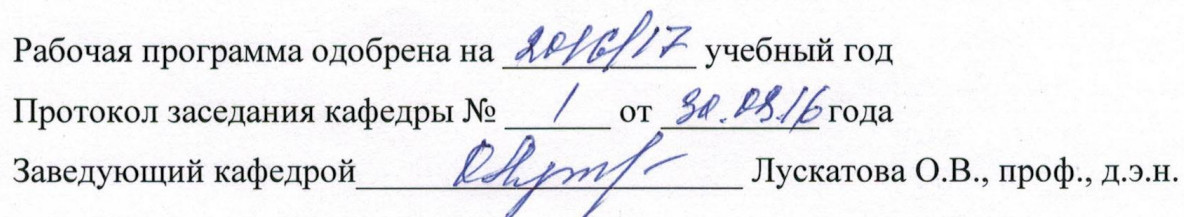 Рабочая программа одобрена на 2016/17 учебный год
Протокол заседания кафедры № 1 от 30.08.16 года
Заведующий кафедрой Лускатова О.В., проф., д.э.н.